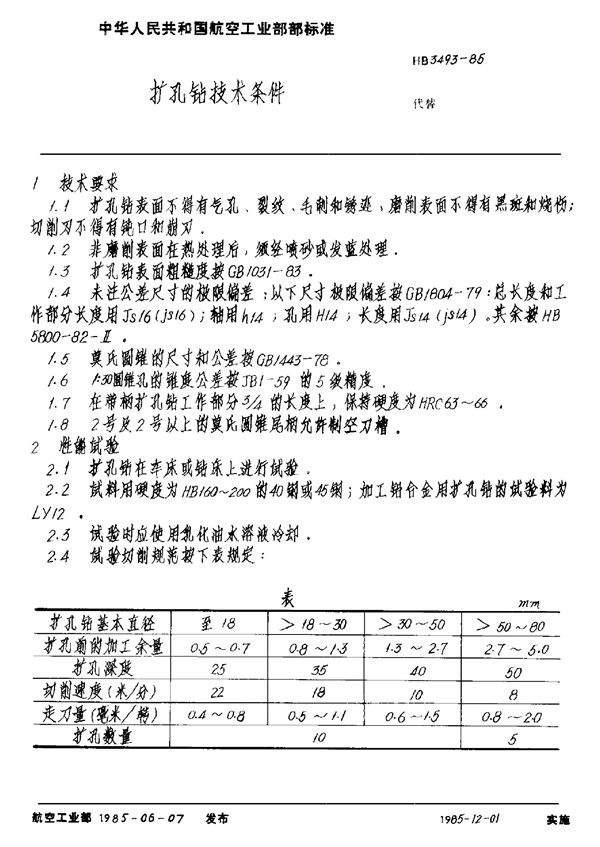 中华人民共和国航空工业部部标准
HB3493-85
扩孔钻技术条件
代替
1 技术要求
1.1 扩孔钻表面不得有气孔、裂纹、毛刺和锈迹、磨削表面不得有黑斑和烧伤;
切削刃不得有钝口和崩刃.
1.2 非磨削表面在热处理后,须经喷砂或发蓝处理.
1.3 扩孔钻表面粗糙度按GB1031-83.
1.4 未注公差尺寸的极限偏差:以下尺寸极限偏差按GB1804-79:总长度和工
作部分长度用Js16(js16);轴用h14;孔用H14;长度用Js14(js14).其余按HB
5800-82-Ⅱ.
1.5 莫氏圆锥的尺寸和公差按GB1443-78.
1.6 1:30圆锥孔的锥度公差按JB1-59的5级精度.
1.7 在带柄扩孔钻工作部分3/4的长度上,保持硬度为HRC63~66.
1.8 2号及2号以上的莫氏圆锥尾柄允许制空刀槽.
2 性能试验
2.1 扩孔钻在车床或钻床上进行试验.
2.2 试料用硬度为HB160~200的40钢或45钢;加工铝合金用扩孔钻的试验料为
LY12.
2.3 试验时应使用乳化油水溶液冷却.
2.4 试验切削规范按下表规定:
表 mm
扩孔钻基本直径 至18 >18~30 >30~50 >50~80
扩孔前的加工余量 0.5~0.7 0.8~1.3 1.3~2.7 2.7~5.0
扩孔深度 25 35 40 50
切削速度(米/分) 22 18 10 8
走刀量(毫米/转) 0.4~0.8 0.5~1.1 0.6~1.5 0.8~2.0
扩孔数量 10 5
航空工业部 1985-06-07 发布 1985-12-01 实施